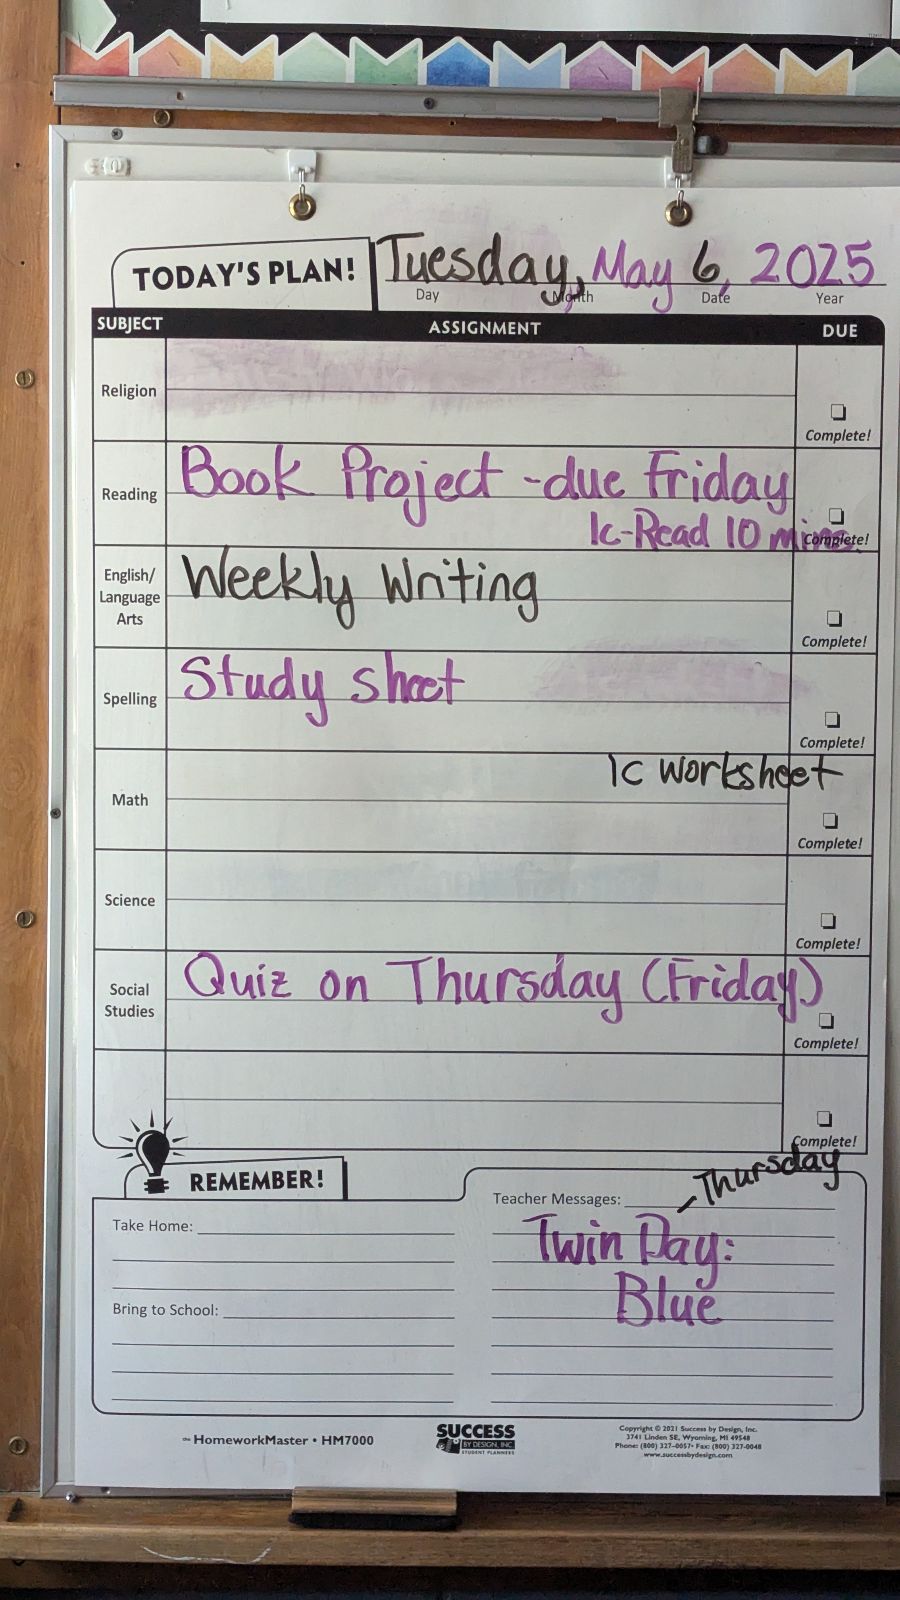 TODAY'S PLAN! Tuesday, May 6, 2025
Day Month Date Year
SUBJECT ASSIGNMENT DUE
Religion
Complete!
Reading Book Project - due Friday
1c-Read 10 mins.
Complete!
English/ Language Arts Weekly Writing
Complete!
Spelling Study sheet
Complete!
Math 1c worksheet
Complete!
Science
Complete!
Social Studies Quiz on Thursday (Friday)
Complete!
Complete!
REMEMBER!
Take Home:
Bring to School:
Teacher Messages: Thursday
Twin Day:
Blue
HomeworkMaster • HM7000
SUCCESS
BY DESIGN, INC.
STUDENT PLANNERS
Copyright © 2021 Success by Design, Inc.
3741 Linden SE, Wyoming, MI 49548
Phone: (800) 327-0057• Fax: (800) 327-0048
www.successbydesign.com